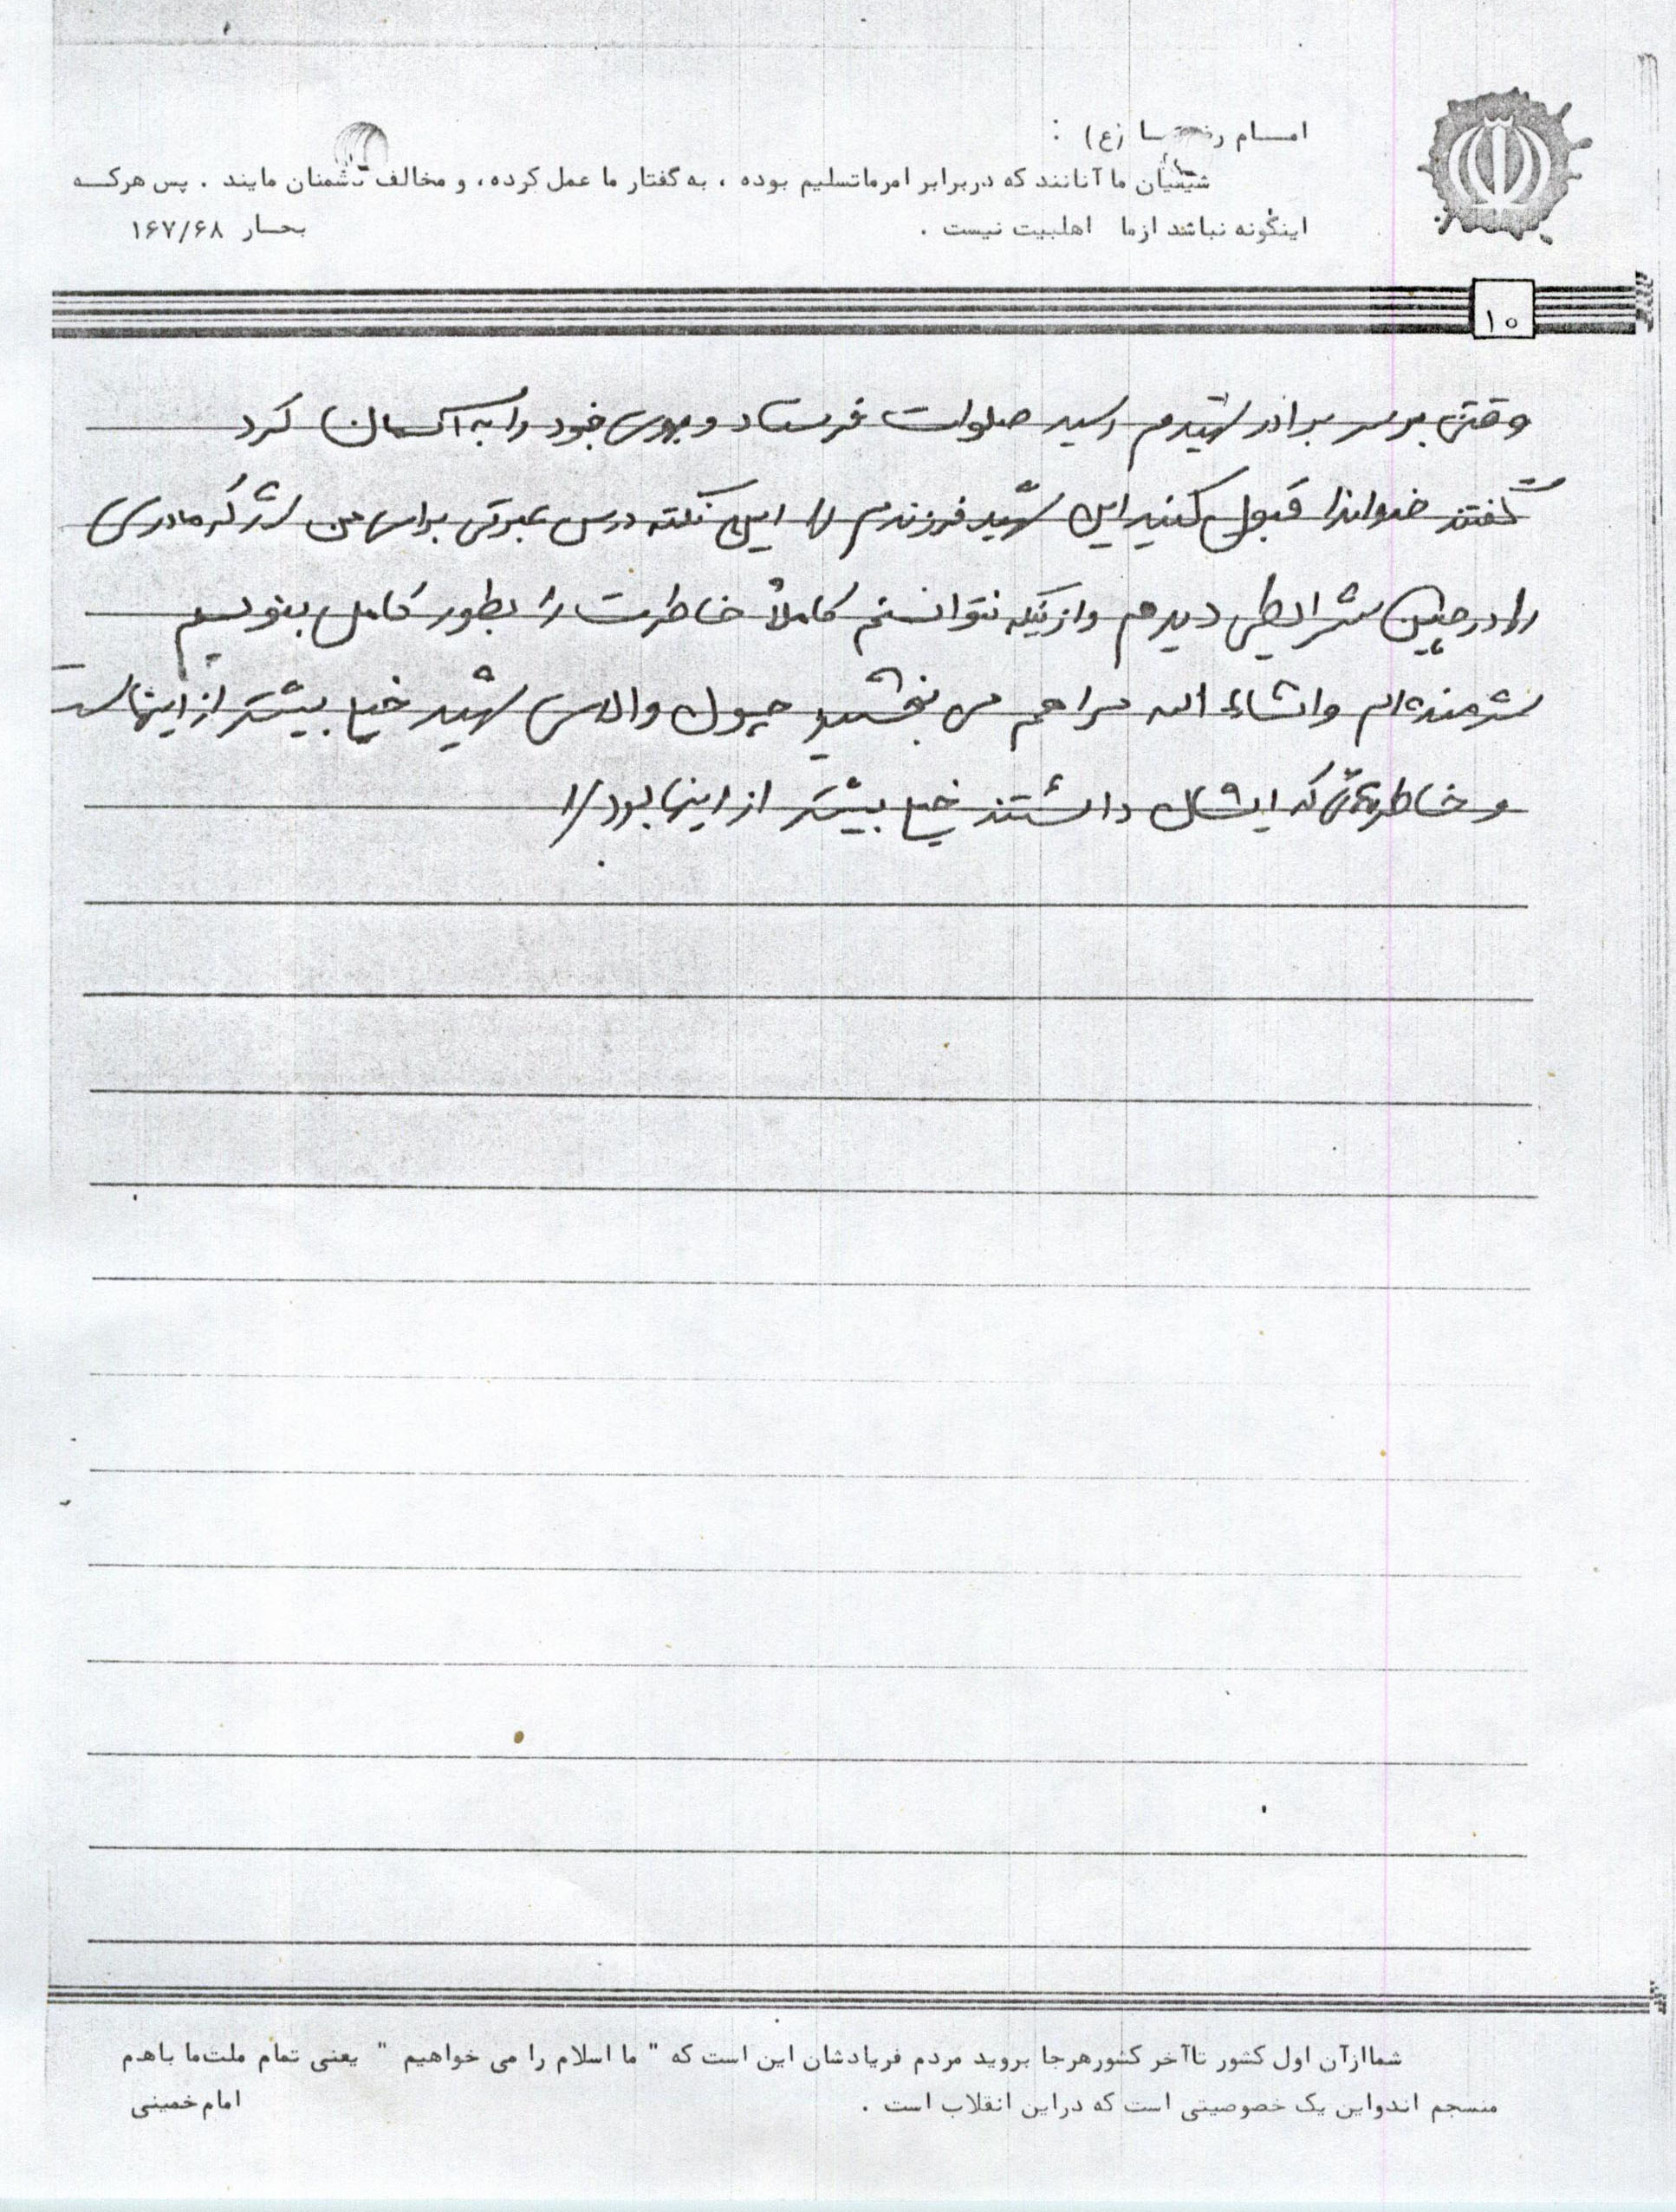 امام رضا (ع) :
شیعیان ما آنانند که در برابر امر ما تسلیم بوده ، به گفتار ما عمل کرده ، و مخالف دشمنان مایند . پس هر کسه
اینگونه نباشد از ما اهلبیت نیست . بحار ۱۶۷/۶۸
۱۰
وقتی بر سر برادر شهیدم رسید صلوات فرستاد و بروی خود را به آسمان کرد
گفتند خداوندا قبول کنید این شهید فرزندم را این نکته درس عبرتی برای من شد که مادری
را در چنین شرایطی دیدم و از اینکه نتوانستم کاملاً خاطرت را بطور کامل بنویسم
شرمنده ام و انشاء الله مرا هم می بخشید چون والای شهید خیلی بیشتر از اینهاست
و خاطره‌ئی که ایشان داشتند خیلی بیشتر از اینها بود //
شما از آن اول کشور تا آخر کشور هر جا بروید مردم فریادشان این است که " ما اسلام را می خواهیم " یعنی تمام ملت ما با هم
منسجم اند و این یک خصوصیتی است که در این انقلاب است . امام خمینی